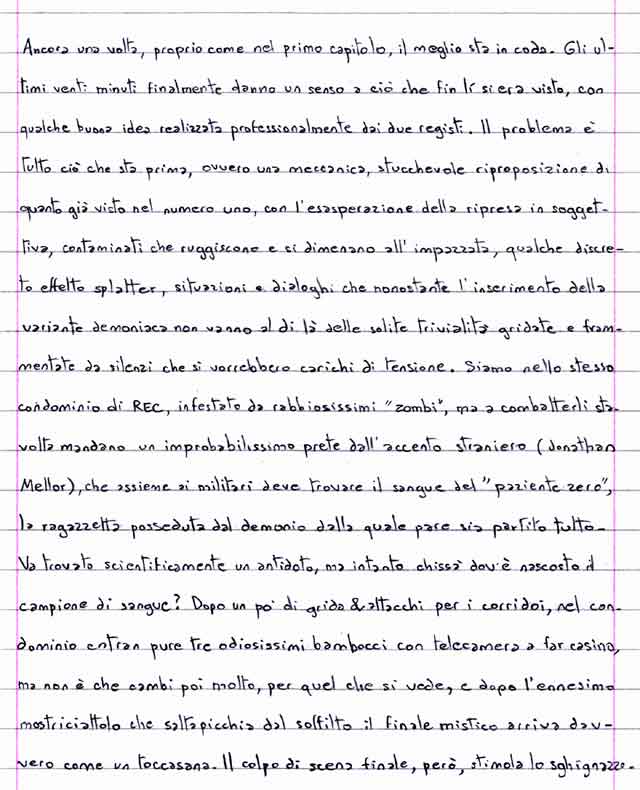 Ancora una volta, proprio come nel primo capitolo, il meglio sta in coda. Gli ul-
timi venti minuti finalmente danno un senso a ciò che fin lí si era visto, con
qualche buona idea realizzata professionalmente dai due registi. Il problema è
tutto ciò che sta prima, ovvero una meccanica, stucchevole riproposizione di
quanto già visto nel numero uno, con l'esasperazione della ripresa in sogget-
tiva, contaminati che ruggiscono e si dimenano all'impazzata, qualche discre-
to effetto splatter, situazioni e dialoghi che nonostante l'inserimento della
variante demoniaca non vanno al di là delle solite trivialità gridate e fram-
mentate da silenzi che si vorrebbero carichi di tensione. Siamo nello stesso
condominio di REC, infestato da rabbiosissimi "zombi", ma a combatterli sta-
volta mandano un improbabilissimo prete dall'accento straniero (Jonathan
Mellor), che assieme ai militari deve trovare il sangue del "paziente zero",
la ragazzetta posseduta dal demonio dalla quale pare sia partito tutto.
Va trovato scientificamente un antidoto, ma intanto chissà dov'è nascosto il
campione di sangue? Dopo un po' di grida & attacchi per i corridoi, nel con-
dominio entran pure tre odiosissimi bambocci con telecamera a far casino,
ma non è che cambi poi molto, per quel che si vede, e dopo l'ennesimo
mostriciattolo che saltapicchia dal soffitto il finale mistico arriva dav-
vero come un toccasana. Il colpo di scena finale, però, stimola lo sghignazzo.